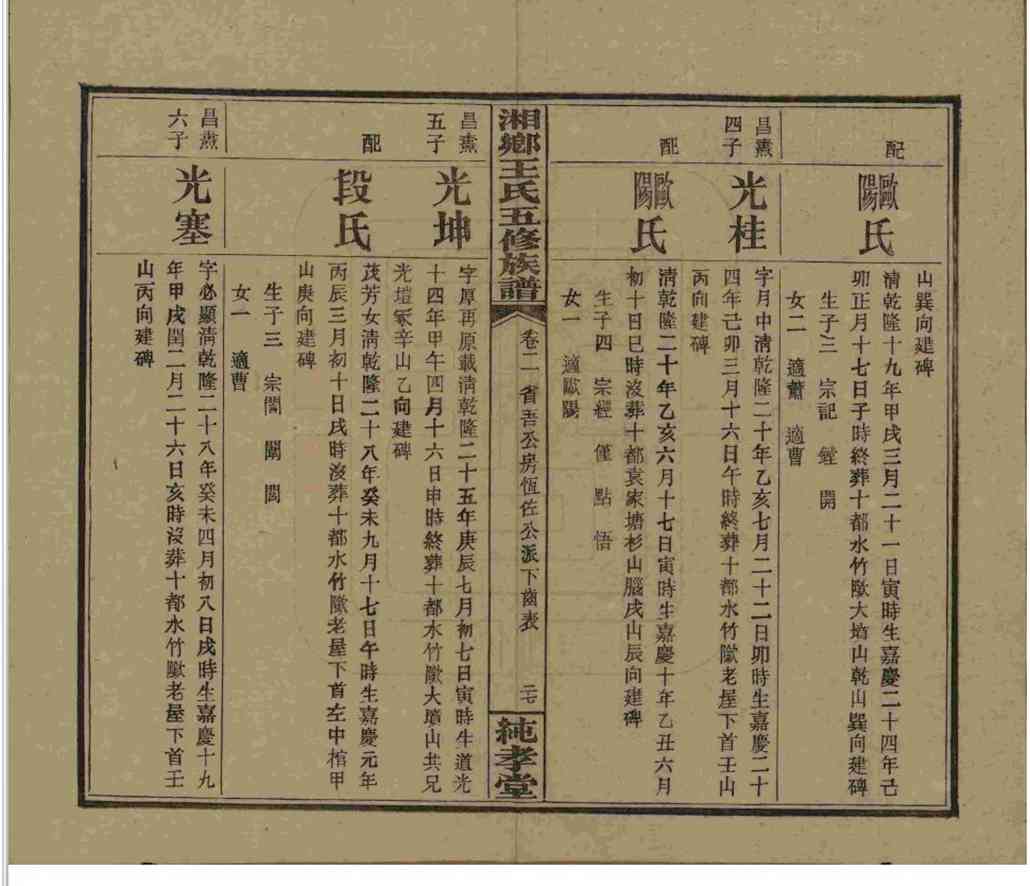 山巽向建碑
配
歐陽氏
淸乾隆十九年甲戌三月二十一日寅時生嘉慶二十四年己
卯正月十七日子時終葬十都水竹歐大墳山乾山巽向建碑
生子三 宗記 鏜 開
女二 適蕭 適曹
昌燾
四子
光桂
字月中淸乾隆二十年乙亥七月二十二日卯時生嘉慶二十
四年己卯三月十六日午時終葬十都水竹歐老屋下首壬山
丙向建碑
配
歐陽氏
淸乾隆二十年乙亥六月十七日寅時生嘉慶十年乙丑六月
初十日巳時沒葬十都袁家塘杉山腦戌山辰向建碑
生子四 宗經 僅 點 悟
女一 適歐陽
湘鄉王氏五修族譜
卷二 省吾公房恆佐公派下齒表
二七
純孝堂
昌燾
五子
光坤
字厚再原載淸乾隆二十五年庚辰七月初七日寅時生道光
十四年甲午四月十六日申時終葬十都水竹歐大墳山共兄
光塏冢辛山乙向建碑
配
段氏
茂芳女淸乾隆二十八年癸未九月十七日午時生嘉慶元年
丙辰三月初十日戌時沒葬十都水竹歐老屋下首左中棺甲
山庚向建碑
生子三 宗闇 闈 閭
女一 適曹
昌燾
六子
光塞
字必顯淸乾隆二十八年癸未四月初八日戌時生嘉慶十九
年甲戌閏二月二十六日亥時沒葬十都水竹歐老屋下首壬
山丙向建碑